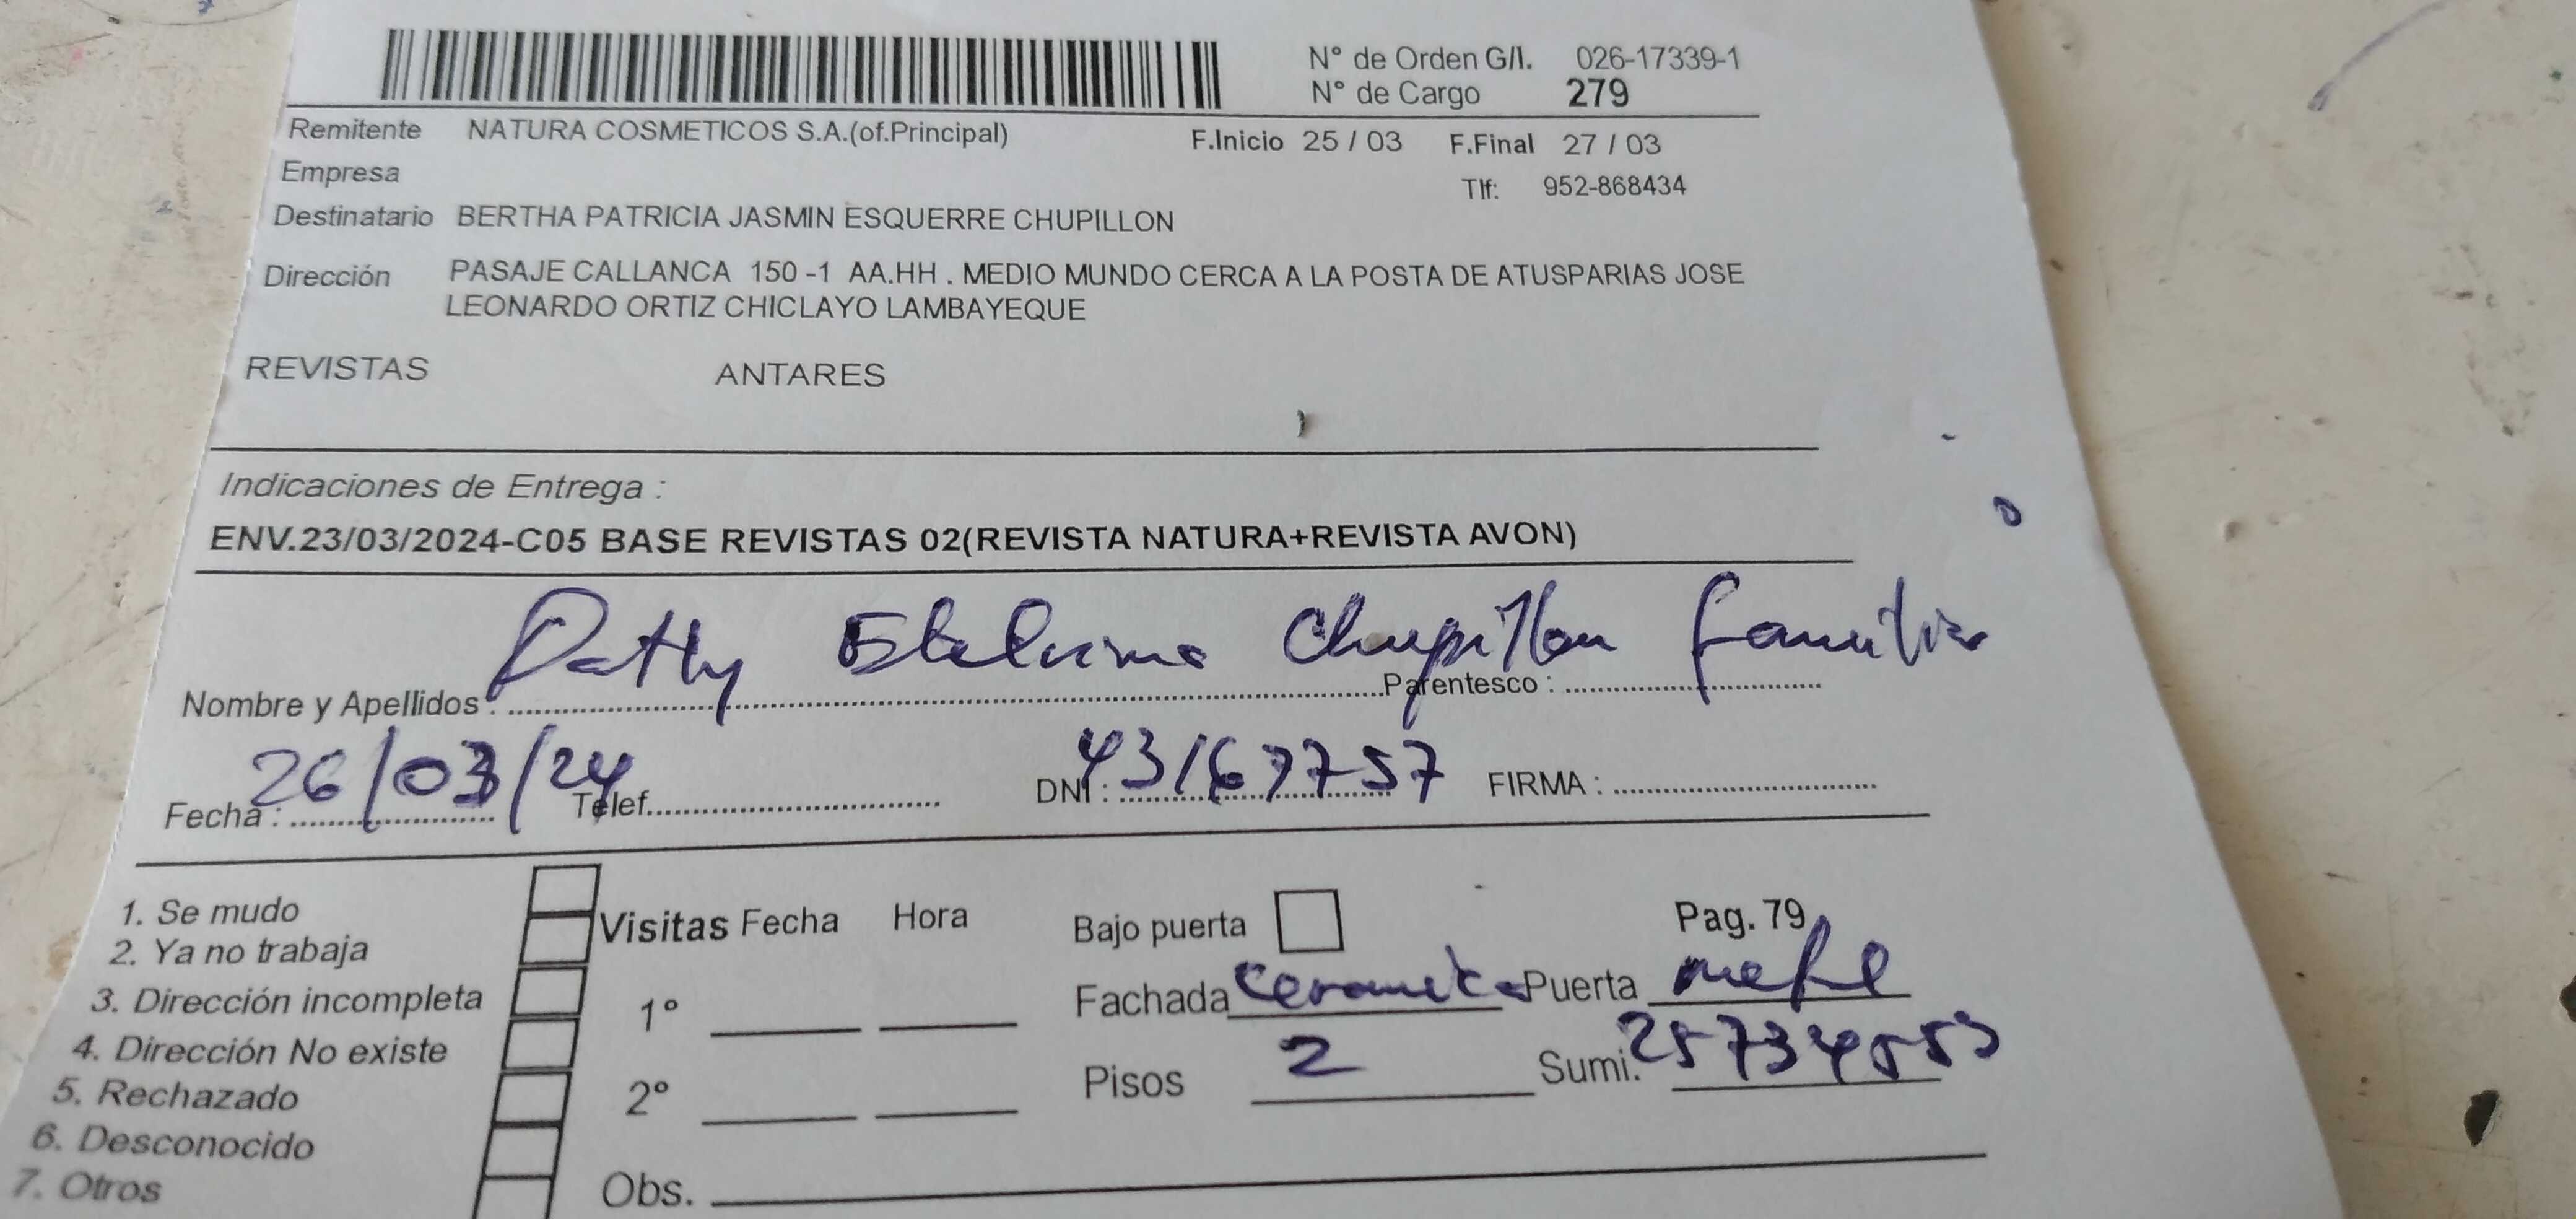 N° de Orden G/I. 026-17339-1
N° de Cargo 279
Remitente NATURA COSMETICOS S.A.(of.Principal) F.Inicio 25 / 03 F.Final 27 / 03
Empresa Tlf: 952-868434
Destinatario BERTHA PATRICIA JASMIN ESQUERRE CHUPILLON
Dirección PASAJE CALLANCA 150 -1 AA.HH . MEDIO MUNDO CERCA A LA POSTA DE ATUSPARIAS JOSE
LEONARDO ORTIZ CHICLAYO LAMBAYEQUE
REVISTAS ANTARES
Indicaciones de Entrega :
ENV.23/03/2024-C05 BASE REVISTAS 02(REVISTA NATURA+REVISTA AVON)
Nombre y Apellidos : Chupillon Parentesco : familia
Fecha : 26/03/24 Telef. DNI : 43167757 FIRMA :
1. Se mudo
2. Ya no trabaja
3. Dirección incompleta
4. Dirección No existe
5. Rechazado
6. Desconocido
7. Otros
Visitas Fecha Hora
1°
2°
Obs.
Bajo puerta Pag. 79
Fachada ceramica Puerta
Pisos 2 Sumi. 25734553